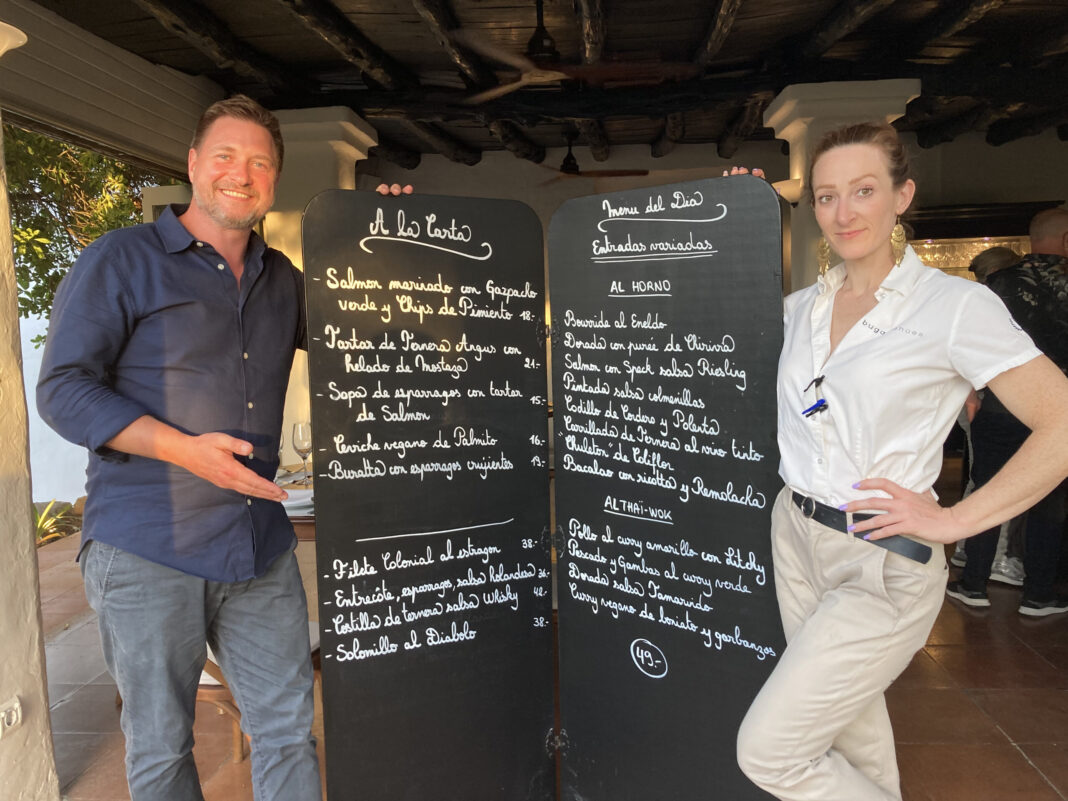 A la Carta
- Salmon marinado con Gazpacho
verde y Chips de Pimiento 18.-
- Tartar de Ternera Angus con
helado de Mostaza 21.-
- Sopa de esparragos con tartar
de Salmon 15.-
- Ceviche vegano de Palmito 16.-
- Buratta con esparragos crujientes 19.-
- Filete Colonial al estragon 38.-
- Entrecôte, esparragos, salsa holandesa 36.-
- Costilla de ternera salsa Whisky 42.-
- Solomillo al Diabolo 38.-
Menu del Dia
Entradas variadas
AL HORNO
Bourride al Eneldo
Dorada con purée de Chirivia
Salmon con Speck salsa Riesling
Pintada salsa colmenillas
Costillo de Cordero y Polenta
Carrillada de Ternera al vino tinto
"Chuleton de Coliflor
Bacalao con ricotta y Remolacha
AL THAÏ-WOK
Pollo al curry amarillo con Litchy
Pescado y Gambas al curry verde
Dorada salsa Tamarindo
Curry vegano de boniato y garbanzos
49.-